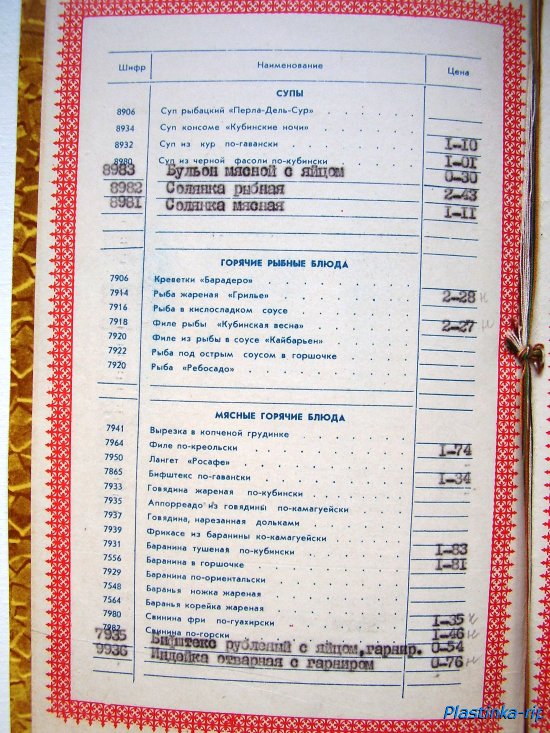 Шифр Наименование Цена
СУПЫ
8906 Суп рыбацкий «Перла-Дель-Сур»
8934 Суп консоме «Кубинские ночи»
8932 Суп из кур по-гавански 1-10
8980 Суп из черной фасоли по-кубински 1-01
8983 Бульон мясной с яйцом 0-30
8982 Солянка рыбная 2-43
8981 Солянка мясная 1-11
ГОРЯЧИЕ РЫБНЫЕ БЛЮДА
7906 Креветки «Барадеро»
7914 Рыба жареная «Грилье» 2-28 н
7916 Рыба в кислосладком соусе
7918 Филе рыбы «Кубинская весна» 2-27 н
7920 Филе из рыбы в соусе «Кайбарьен»
7922 Рыба под острым соусом в горшочке
7920 Рыба «Ребосадо»
МЯСНЫЕ ГОРЯЧИЕ БЛЮДА
7941 Вырезка в копченой грудинке
7964 Филе по-креольски 1-74
7950 Лангет «Росафе»
7865 Бифштекс по-гавански 1-34
7933 Говядина жареная по-кубински
7935 Аппорреадо из говядины по-камагуейски
7937 Говядина, нарезанная дольками
7939 Фрикасе из баранины ко-камагуейски
7931 Баранина тушеная по-кубински 1-83
7556 Баранина в горшочке 1-81
7929 Баранина по-ориентальски
7548 Баранья ножка жареная
7564 Баранья корейка жареная
7980 Свинина фри по-гуахирски 1-35 н
7982 Свинина по-горски 1-46 н
7935 Бифштекс рубленый с яйцом,гарнир. 0-54
9936 Индейка отварная с гарниром 0-76 н
Plastinka-rip